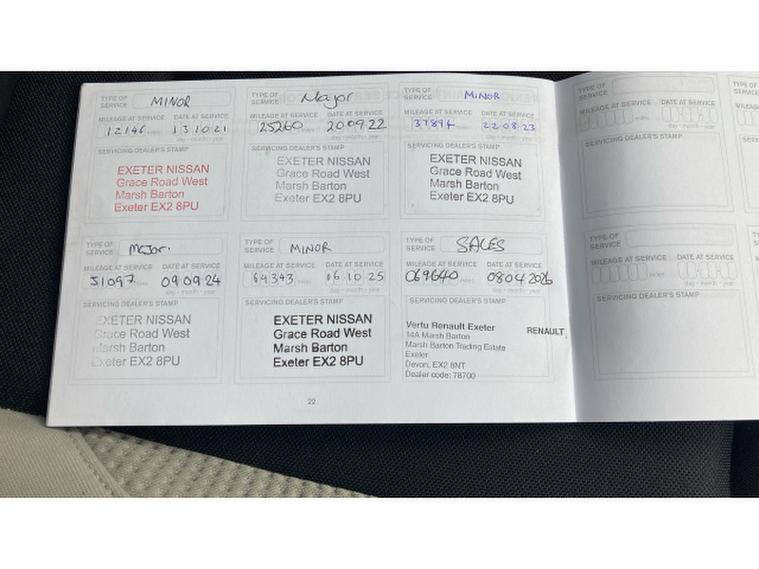 TYPE OF SERVICE MINOR
MILEAGE AT SERVICE DATE AT SERVICE
12146 miles 13 10 21
day - month - year
SERVICING DEALER'S STAMP
EXETER NISSAN
Grace Road West
Marsh Barton
Exeter EX2 8PU
TYPE OF SERVICE Major
MILEAGE AT SERVICE DATE AT SERVICE
25260 miles 20 09 22
day - month - year
SERVICING DEALER'S STAMP
EXETER NISSAN
Grace Road West
Marsh Barton
Exeter EX2 8PU
TYPE OF SERVICE MINOR
MILEAGE AT SERVICE DATE AT SERVICE
37894 miles 22 08 23
day - month - year
SERVICING DEALER'S STAMP
EXETER NISSAN
Grace Road West
Marsh Barton
Exeter EX2 8PU
TYPE OF SERVICE
MILEAGE AT SERVICE DATE AT SERVICE
miles
day - month - year
SERVICING DEALER'S STAMP
TYPE OF SERVICE Major.
MILEAGE AT SERVICE DATE AT SERVICE
51097 miles 09 09 24
day - month - year
SERVICING DEALER'S STAMP
EXETER NISSAN
Grace Road West
Marsh Barton
Exeter EX2 8PU
TYPE OF SERVICE MINOR
MILEAGE AT SERVICE DATE AT SERVICE
64343 miles 06 10 25
day - month - year
SERVICING DEALER'S STAMP
EXETER NISSAN
Grace Road West
Marsh Barton
Exeter EX2 8PU
TYPE OF SERVICE SALES
MILEAGE AT SERVICE DATE AT SERVICE
069640 08 04 2026
day - month - year
SERVICING DEALER'S STAMP
Vertu Renault Exeter RENAULT
14A Marsh Barton
Marsh Barton Trading Estate
Exeter
Devon, EX2 8NT
Dealer code: 78700
TYPE OF SERVICE
MILEAGE AT SERVICE DATE AT SERVICE
miles
day - month - year
SERVICING DEALER'S STAMP
22